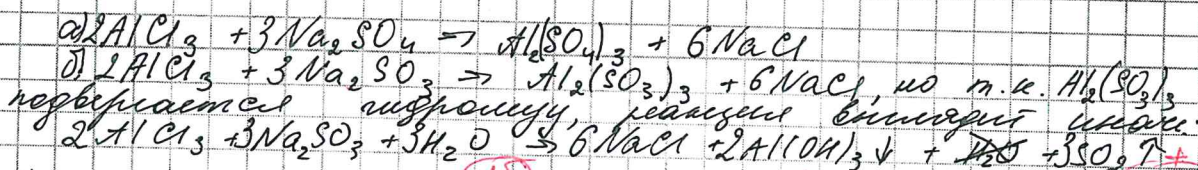 а) 2AlCl₃ + 3Na₂SO₄ → Al₂(SO₄)₃ + 6NaCl
б) 2AlCl₃ + 3Na₂SO₃ → Al₂(SO₃)₃ + 6NaCl, но т.к. Al₂(SO₃)₃
подвергается гидролизу, реакция выглядит иначе:
2AlCl₃ + 3Na₂SO₃ + 3H₂O → 6NaCl + 2Al(OH)₃↓ + H₂O + 3SO₂↑ +